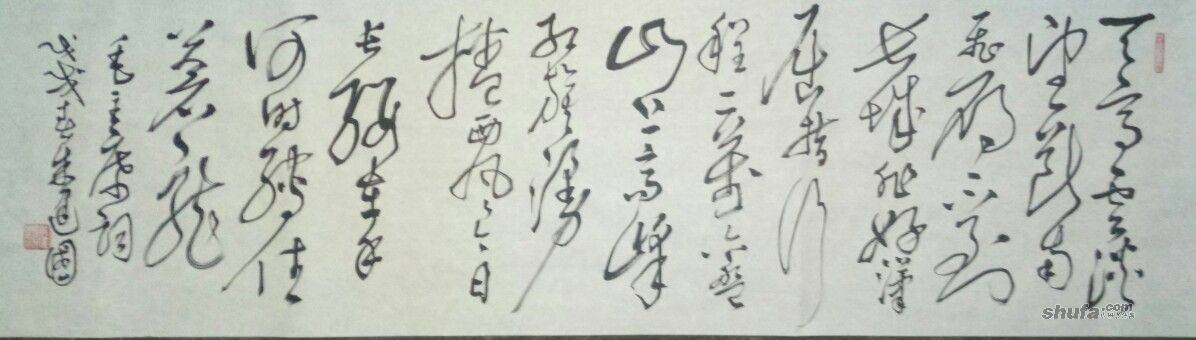 天高云淡
望断南
飞雁不到
长城非好漢
屈指行
程二萬六盘
山上高峰
红旗漫
捲西风今日
长缨在手
何时缚住
苍龙
毛主席词
戊戌春朱
shufa.com